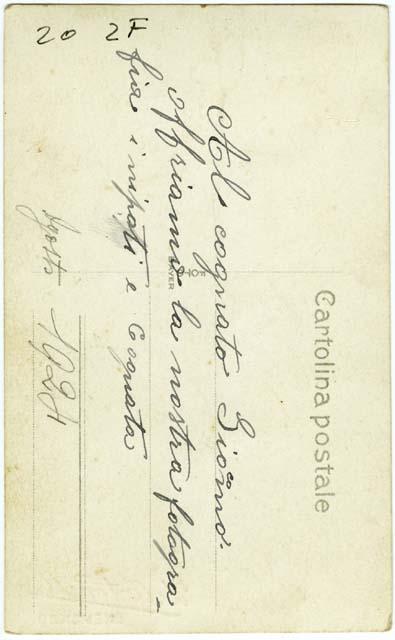 20 2F
Cartolina postale
Al cognato Giacomo.
offriamo la nostra fotogra-
fia i nipoti e Cognata
Agosto 1924